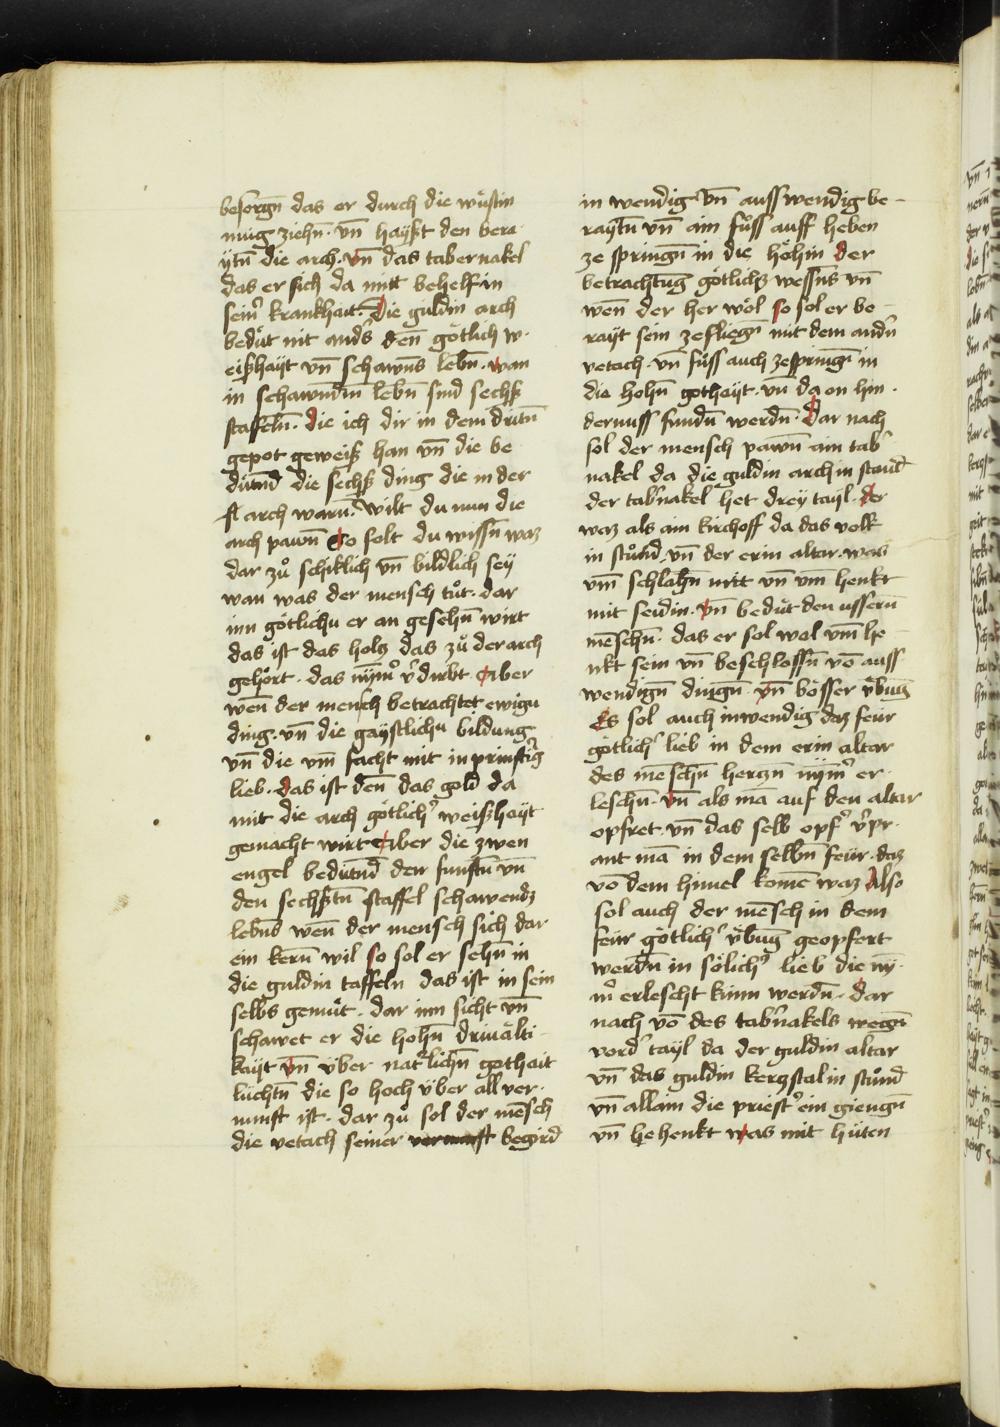 besorgn̄ das er durch die wuͤstin
nuͤg ziehn̄. vn̄ haysst den bera
ytn̄ die arch. vn̄ das tabernakel
das er sich da mitt behelf in
sein̄ krankhait. Die guldin arch
bedüt nit anders den̄ götlich w-
eißhayt vn̄ schawns lebn̄. wan
in schawndm̄ lebn̄ sind sechß
staffeln̄. die ich dir in dem dritn̄
gepot geweiß han vn̄ die be
dütnd die sechß ding die in der
arch warn̄. Wilt du nun die
arch pawn̄ so solt du wissn̄ waz
dar zuͦ schiklich vn̄ bildlich sey
wan was der mensch tuͦt. dar
inn götlichu er an gesehn̄ wirt
das ist das holtz das zuͦ der arch
gehört. das nym̄er v̄dirbt. Aber
wen̄ der mensch betrachtet ewigu
ding. vn̄ die gaystlichu bildung
vn̄ die vm̄ facht mit inprinstiḡ
lieb. das ist den̄ das gold da
mit die arch götlicher weißhayt
gemacht wirt Aber die zwen
engel bedütnd den funftn̄ vn̄
den sechßtn̄ staffel schawendz
lebns̄ wen̄ der mensch sich dar
ein kern̄ wil so sol er sehn̄ in
die guldin taffeln das ist in sein
selbs gemüt. dar inn sicht vn̄
schawet er die hohn̄ drivälti-
kayt vn̄ über natʳlichn̄ gothait
lüchtn̄ die so hoch über all ver-
nunft ist. dar zuͦ sol der mēsch
die vetach seiner vernunft begird
in wendig vn̄ auss wendig be-
raytn̄ vn̄ ain fuͦss auff heben
ze springn̄ in die höhin der
betrachtūg götlichz wessns̄ vn̄
wen̄ der her wöl so sol er be-
rayt sein ze fliegn̄ mit dem andn̄
vetach. vn̄ fuͦss auch ze springn̄ in
die hohn̄ gothayt. vn̄ da on hin-
dernuss fundn̄ werdn̄. Dar nach
sol der mensch pawn̄ ain tab̄
nakel da die guldin arch in stand
der tab̄nakel het drey tayl. der
waz als ain kirchoff da das volk
in stuͦnd. vn̄ der erin altar. was
vm̄ schlahn̄ mitt vn̄ vm̄ henkt
mit seidin. vn̄ bedüt den ussern̄
mēschn̄. das er sol wol vm̄ he
nkt sein vn̄ beschlossn̄ vō auss
wendign̄ dingn̄. vn̄ bösser v̈būg
Es sol auch inwendig daz feür
götlicher lieb in dem erin altar
des mēschn̄ hertzn̄ nym̄er er-
leschn̄. vn̄ als mā auf den altar
opfret vn̄ das selb opfer v̄pr-
ant mā in dem selbn̄ feür. daz
vō dem himel komē waz Also
sol auch der mēsch in dem
feür götlicher v̈būg geopfert
werdn̄ in sölicher lieb die ny-
m̄er erlescht kinn werdn̄. Dar
nach vō des tab̄nakels wegn̄
vorder tayl da der guldin altar
vn̄ das guldin kerzstal in stuͦnd
vn̄ allain die priester ein giengn̄
vn̄ behenkt was mit hüten